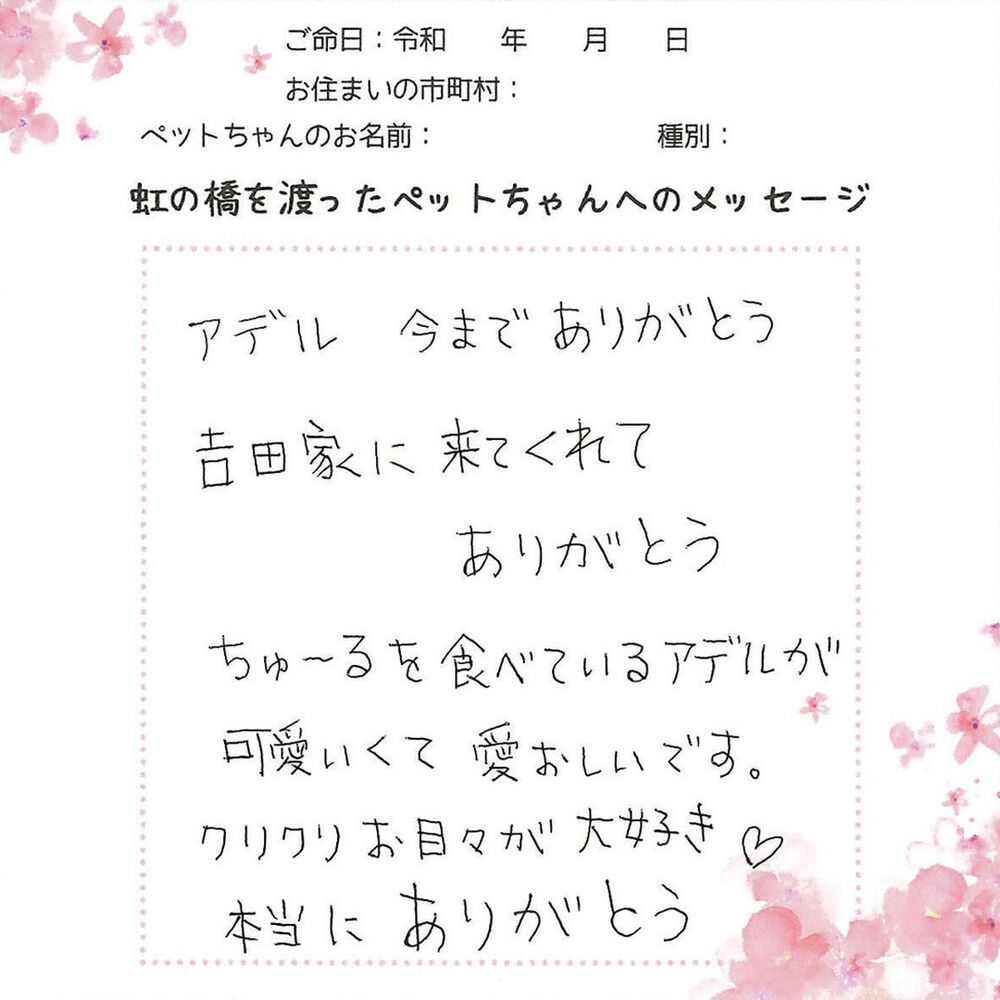 ご命日：令和　　年　　月　　日
お住まいの市町村：
ペットちゃんのお名前：　　　　　　　　種別：
虹の橋を渡ったペットちゃんへのメッセージ
アデル　今までありがとう
吉田家に来てくれて
ありがとう
ちゅ〜るを食べているアデルが
可愛いくて愛おしいです。
クリクリお目々が大好き♡
本当にありがとう